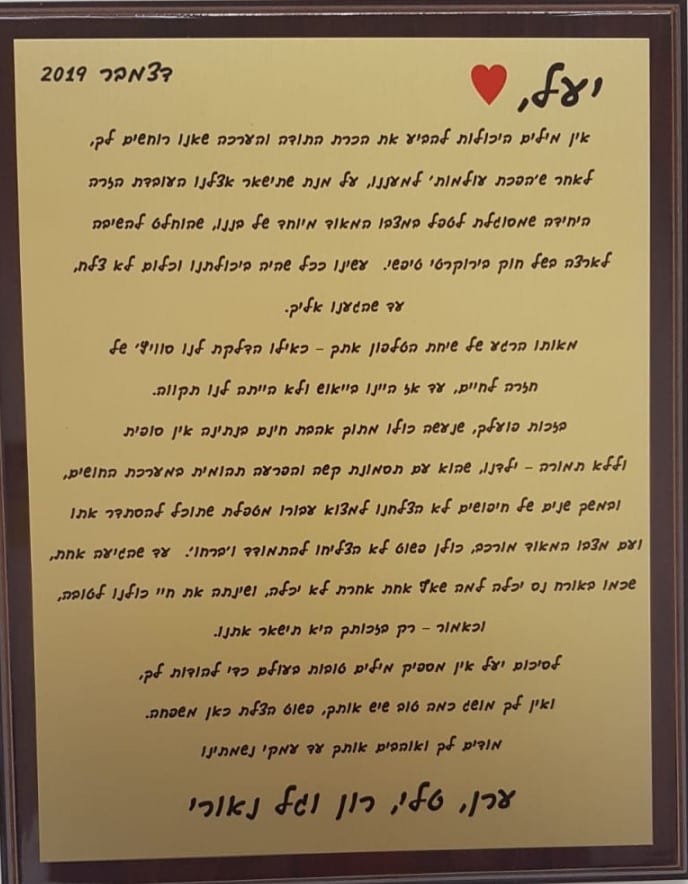 דצמבר 2019
יעל,
אין מילים היכולות להביע את הכרת התודה והערכה שאנו רוחשים לך,
לאחר ש'הפכת עולמות' למעננו, על מנת שתישאר אצלנו העובדת הזרה
היחידה שמסוגלת לטפל במצבו המאוד מיוחד של בננו, שהוחלט להשיבה
לארצה בשל חוק בירוקרטי טיפשי. עשינו ככל שהיה ביכולתנו וכלום לא צלח,
עד שהגענו אליך.
מאותו הרגע של שיחת הטלפון אתך – כאילו הדלקת לנו סוויץ' של
חזרה לחיים, עד אז היינו בייאוש ולא הייתה לנו תקווה.
בזכות פועלך, שנעשה כולו מתוך אהבת חינם בנתינה אין סופית
וללא תמורה – ילדנו, שהוא עם תסמונת קשה והפרעה תהומית במערכת החושים,
ובמשך שנים של חיפושים לא הצלחנו למצוא עבורו מטפלת שתוכל להסתדר אתו
ועם מצבו המאוד מורכב, כולן פשוט לא הצליחו להתמודד ו'ברחו'. עד שהגיעה אחת,
שכמו באורח נס יכלה למה שאף אחת אחרת לא יכלה, ושינתה את חיי כולנו לטובה,
וכאמור – רק בזכותך היא תישאר אתנו.
לסיכום יעל אין מספיק מילים טובות בעולם כדי להודות לך,
ואין לך מושג כמה טוב שיש אותך, פשוט הצלת כאן משפחה.
מודים לך ואוהבים אותך עד עמקי נשמתינו
ערן, טלי, רון וגל נאורי